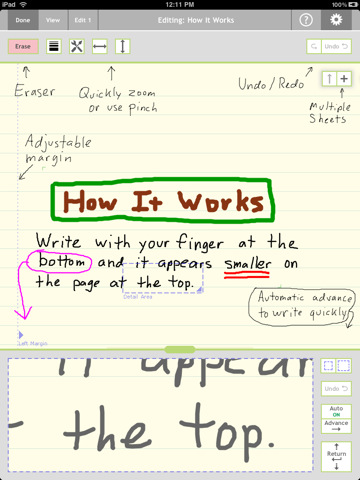 iPad 12:11 PM 100%
Done View Edit 1 Editing: How It Works ?
Erase Undo
Eraser
Quickly zoom
or use pinch
Undo/Redo
Multiple
Sheets
Adjustable
margin
How It Works
Write with your finger at the
bottom and it appears smaller on
the page at the top.
Detail Area
Automatic advance
to write quickly
Left Margin
it appear
the top.
Undo
Auto
ON
Advance
Return